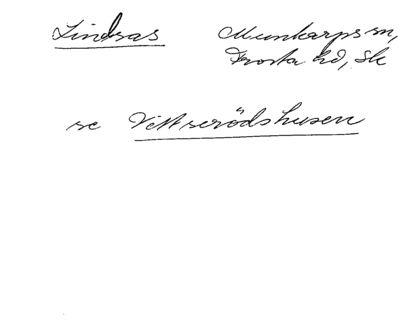 Lindsas Munkarps sn,
Frosta hd, Sk
se Vittserödshusen